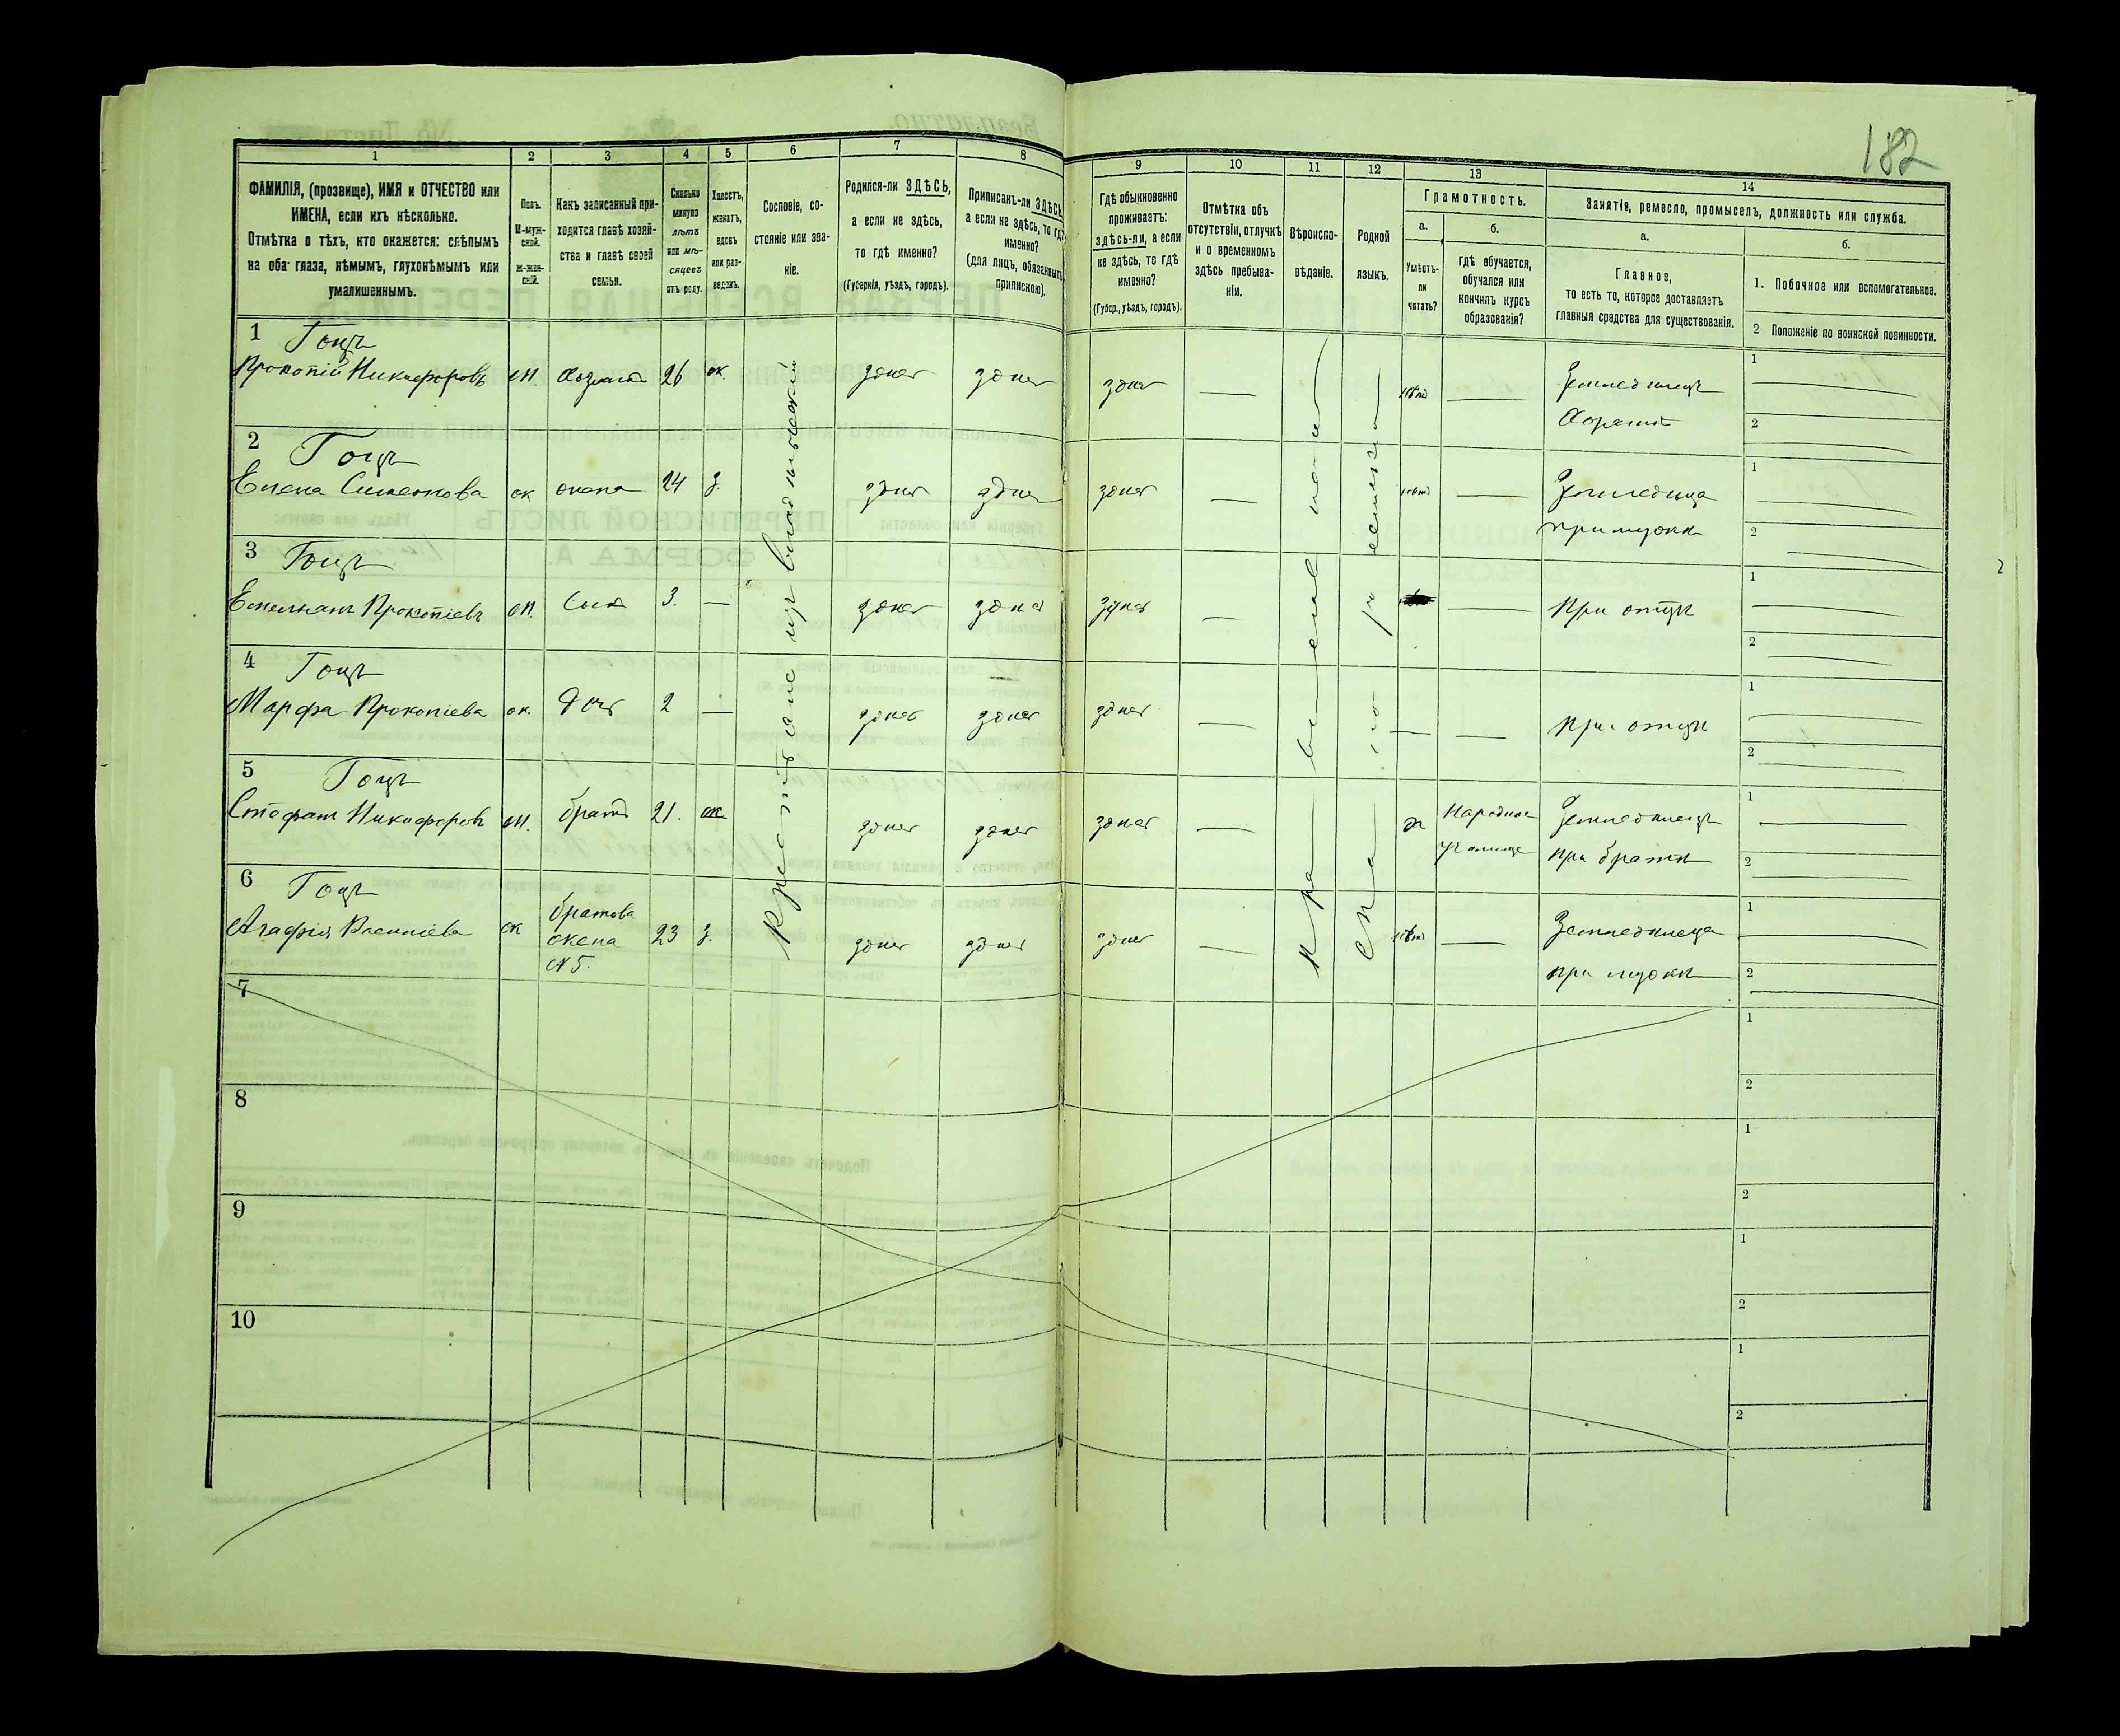 182
1 2 3 4 5 6 7 8 9 10 11 12 13 14
ФАМИЛІЯ, (прозвище), ИМЯ и ОТЧЕСТВО или
ИМЕНА, если ихъ нѣсколько.
Отмѣтка о тѣхъ, кто окажется: слѣпымъ
на оба глаза, нѣмымъ, глухонѣмымъ или
умалишеннымъ.
Полъ.
М-муж-
ской.
Ж-жен-
скій.
Какъ записанный при-
ходится главѣ хозяй-
ства и главѣ своей
семьи.
Сколько
минуло
лѣтъ
или мѣ-
сяцевъ
отъ роду.
Холостъ,
женатъ,
вдовъ
или раз-
веденъ.
Сословіе, со-
стояніе или зва-
ніе.
Родился-ли ЗДѢСЬ,
а если не здѣсь,
то гдѣ именно?
(Губернія, уѣздъ, городъ).
Приписанъ-ли ЗДѢСЬ,
а если не здѣсь, то гдѣ
именно?
(для лицъ, обязанныхъ
припискою).
Гдѣ обыкновенно
проживаетъ:
здѣсь-ли, а если
не здѣсь, то гдѣ
именно?
(Губер., уѣздъ, городъ).
Отмѣтка объ
отсутствіи, отлучкѣ
и о временномъ
здѣсь пребыва-
ніи.
Вѣроиспо-
вѣданіе.
Родной
языкъ.
Грамотность.
а.
Умѣетъ-
ли
читать?
б.
гдѣ обучается,
обучался или
кончилъ курсъ
образованія?
Занятіе, ремесло, промыселъ, должность или служба.
а.
Главное,
то есть то, которое доставляетъ
главныя средства для существованія.
б.
1. Побочное или вспомогательное.
2 Положеніе по воинской повинности.
Крестьяне изъ владѣльческій
православное
1 Гоцъ
Прокопій Никифоровъ м. хозяинъ 26 ж. здесь здесь здесь — нѣтъ — Земледѣлецъ
хозяинъ
1
2
2 Гоцъ
Елена Симеонова ж жена 24 з. здесь здесь здесь — нѣтъ — Земледѣлица
при мужѣ
1
2
3 Гоцъ
Емельянъ Прокопіевъ м. Сынъ 3. — здесь здесь здесь — — При отцѣ
1
2
4 Гоцъ
Марфа Прокопіева ж. Дочь 2 — здесь здесь здесь — — — При отцѣ
1
2
5 Гоцъ
Стефанъ Никифоровъ м. братъ 21. ж. здесь здесь здесь — да Народное
училище
Земледѣлецъ
при братѣ
1
2
6 Гоцъ
Агафія ж братова
жена
№ 5.
23 з. здесь здесь здесь — нѣтъ — Земледѣлица
при мужѣ
1
2
7
1
2
8
1
2
9
1
2
10
1
2